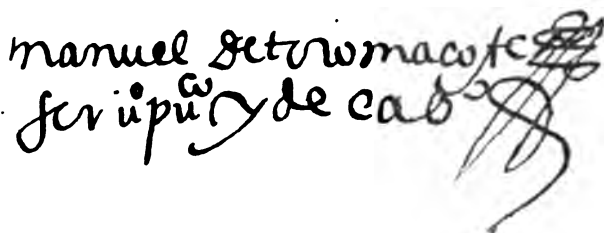 manuel de toro maçote
scriuº puᶜᵒ y de cabᵒ